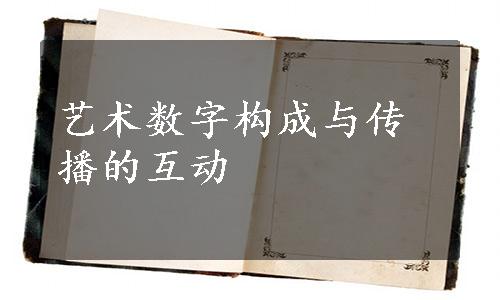 艺术数字构成与传
播的互动